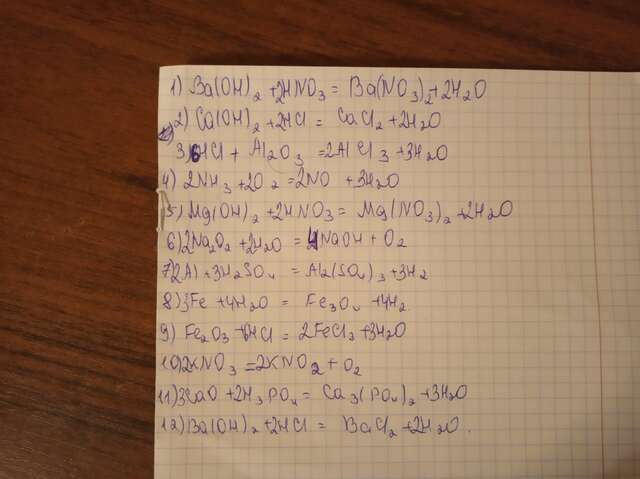 1) Ba(OH)2 + 2HNO3 = Ba(NO3)2 + 2H2O
2) Ca(OH)2 + 2HCl = CaCl2 + 2H2O
3) 6HCl + Al2O3 = 2AlCl3 + 3H2O
4) 2NH3 + 2O2 = 2NO + 3H2O
5) Mg(OH)2 + 2HNO3 = Mg(NO3)2 + 2H2O
6) 2Na2O2 + 2H2O = 4NaOH + O2
7) 2Al + 3H2SO4 = Al2(SO4)3 + 3H2
8) 3Fe + 4H2O = Fe3O4 + 4H2
9) Fe2O3 + 6HCl = 2FeCl3 + 3H2O
10) 2KNO3 = 2KNO2 + O2
11) 3CaO + 2H3PO4 = Ca3(PO4)2 + 3H2O
12) Ba(OH)2 + 2HCl = BaCl2 + 2H2O.